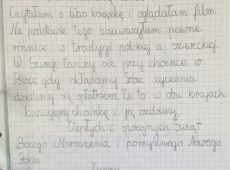 Czytałam o tibo książkę i oglądałam film.
Na podstawie tego zauważyłam pewne
różnice w tradycji polskiej a szweckiej.
W Szwecji tańczy się przy choince, w
Polsce gdy składamy sobie życzenia
dzielimy się opłatkiem. Za to w obu krajach
kupujemy choinkę i ją ozdamy.
Ciepłych i spokojnych świąt
Bożego Narodzenia i pomyślnego Nowego
Roku.